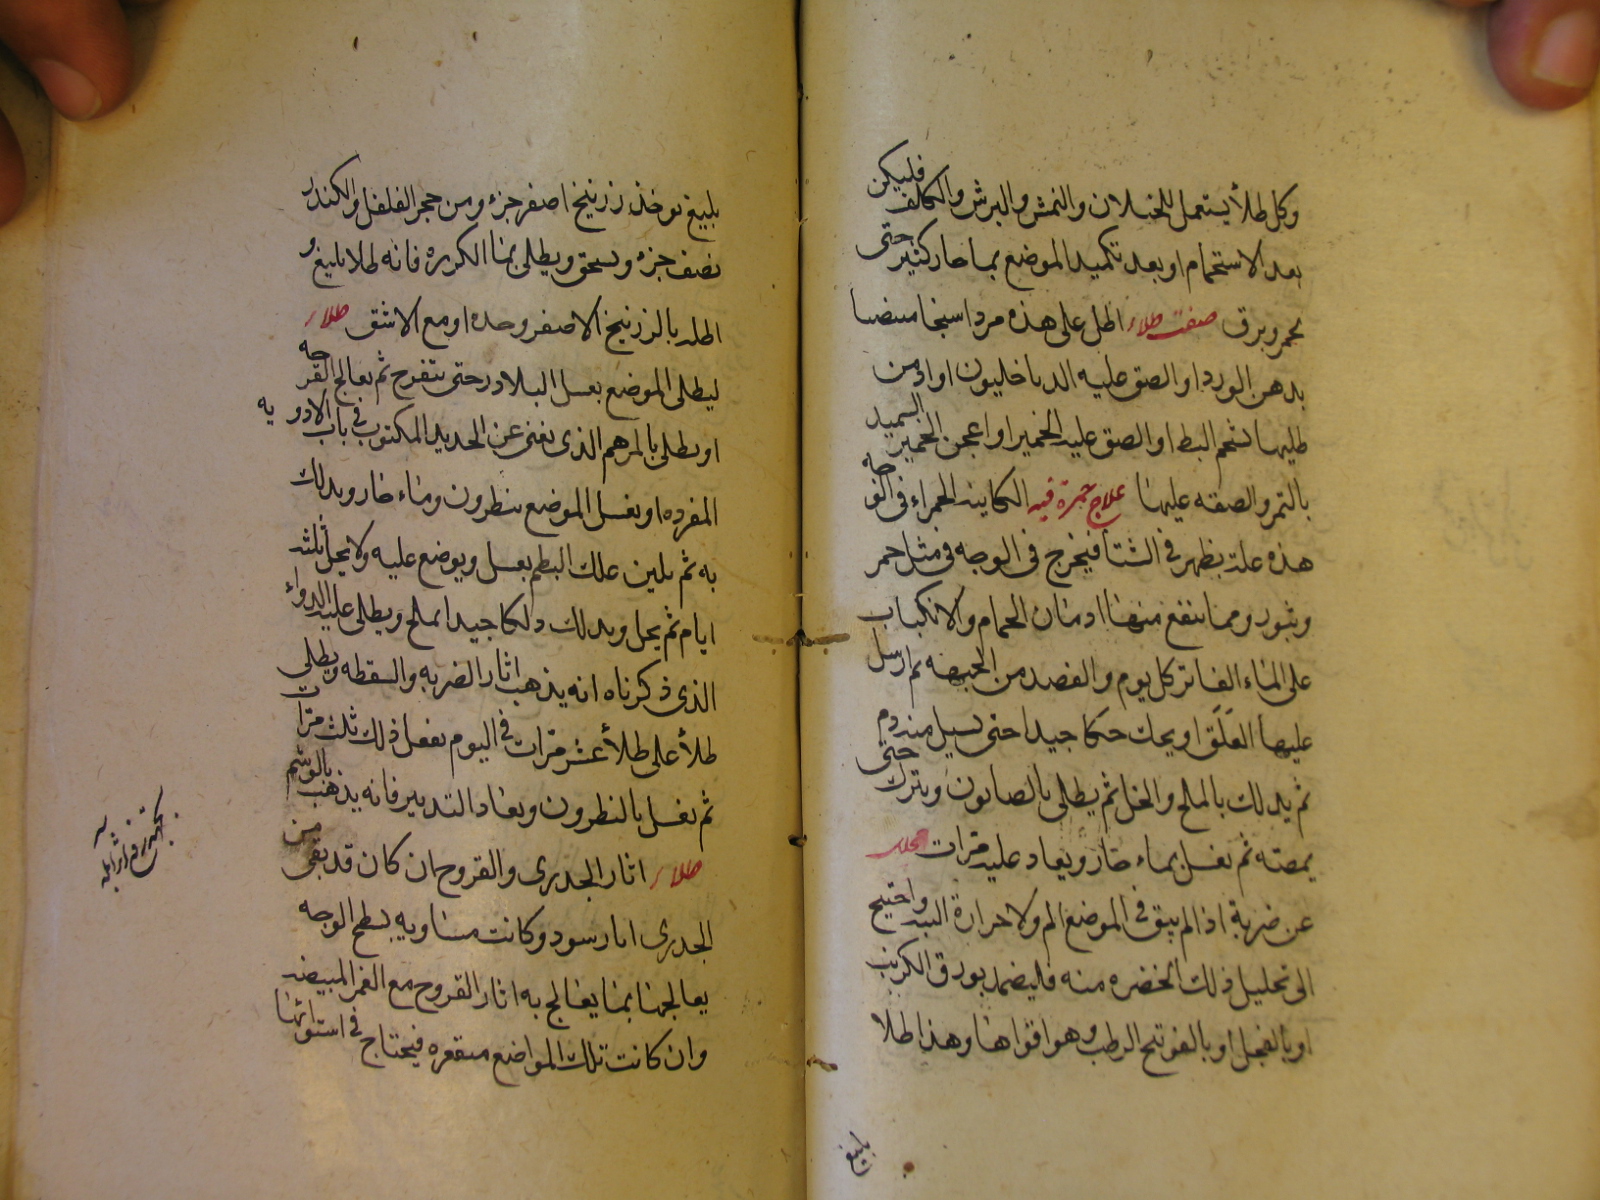 وكل طلأ يستعمل للخيلان والنمش والبرش والكلف فليكن
بعد الاستحمام او بعد تكميد الموضع بما حار كثير حتى
يحمر ويرق صفت طلاء اطل على هذه مرداسنجا مبيضا
بدهن الورد او الصق عليه الدياخليون او ادمن
طليها بشحم البط او الصق عليه الخمير او اعجن الخمير السميد
بالتمر والصقه عليها علاج حمرة فيه الكاينه الحمراء فى الوجه
هذه علة يظهر فى الشتا فيخرج فى الوجه فى مثل حمر
وبثور ومما ينفع منها ادمان الحمام والانكباب
على الماء الفاتر كل يوم والفصد من الجبهه ثم ارسل
عليها العَلَق او يحك حكا جيدا حتى يسيل منه دم
ثم يدلك بالملح والخل ثم يطلى بالصابون ويترك حتى
يمصته ثم يغسل بماء حار ويعاد عليه مرات
عن ضربة اذا لم يبق فى الموضع الم ولا حرارة البه واحتيج
الى تحليل ذلك الخضره منه فليضمد بورق الكرنب
او بالفجل او بالفوتنج الرطب وهو اقواها وهذا طلا
بليغ
بليغ يوخذ زرنيخ اصفر جزء ومن حجر الفلفل والكندر
نصف جزء ويسحق ويطلى بما الكزبره فانه طلا بليغ و
اطله بالزرنيخ الاصفر وحده او مع الاشق طلاء
ليطلى الموضع بعسل البلادر حتى يتقرح ثم يعالج القرحه
او يطلى بالمرهم الذى يغنى عن الحديد المكتوب فى باب الادويه
المفرده او يغسل الموضع بنطرون وماء حار ويدلك
به ثم يلين علك البطم بعسل ويوضع عليه ولا يحل ثلثه
ايام ثم يحل ويدلك دلكا جيدا بملح ويطلى عليه الدواء
الذى ذكرناه انه يذهب اثار الضربه والسقطه ويطلى
طلأ على طلأ عشر مرّات فى اليوم يفعل ذلك ثلث مرّات
ثم يغسل بالنطرون ويعاد التدبير فانه يذهب بالوشم
طلاء اثار الجدرى والقروح ان كان قد بقى من
الجدرى اثار سود وكانت مساويه بسطح الوجه
يعالجها بما يعالج به اثار القروح مع الغمر المبيضه
وان كانت تلك المواضع متقعره فيحتاج فى استوائها